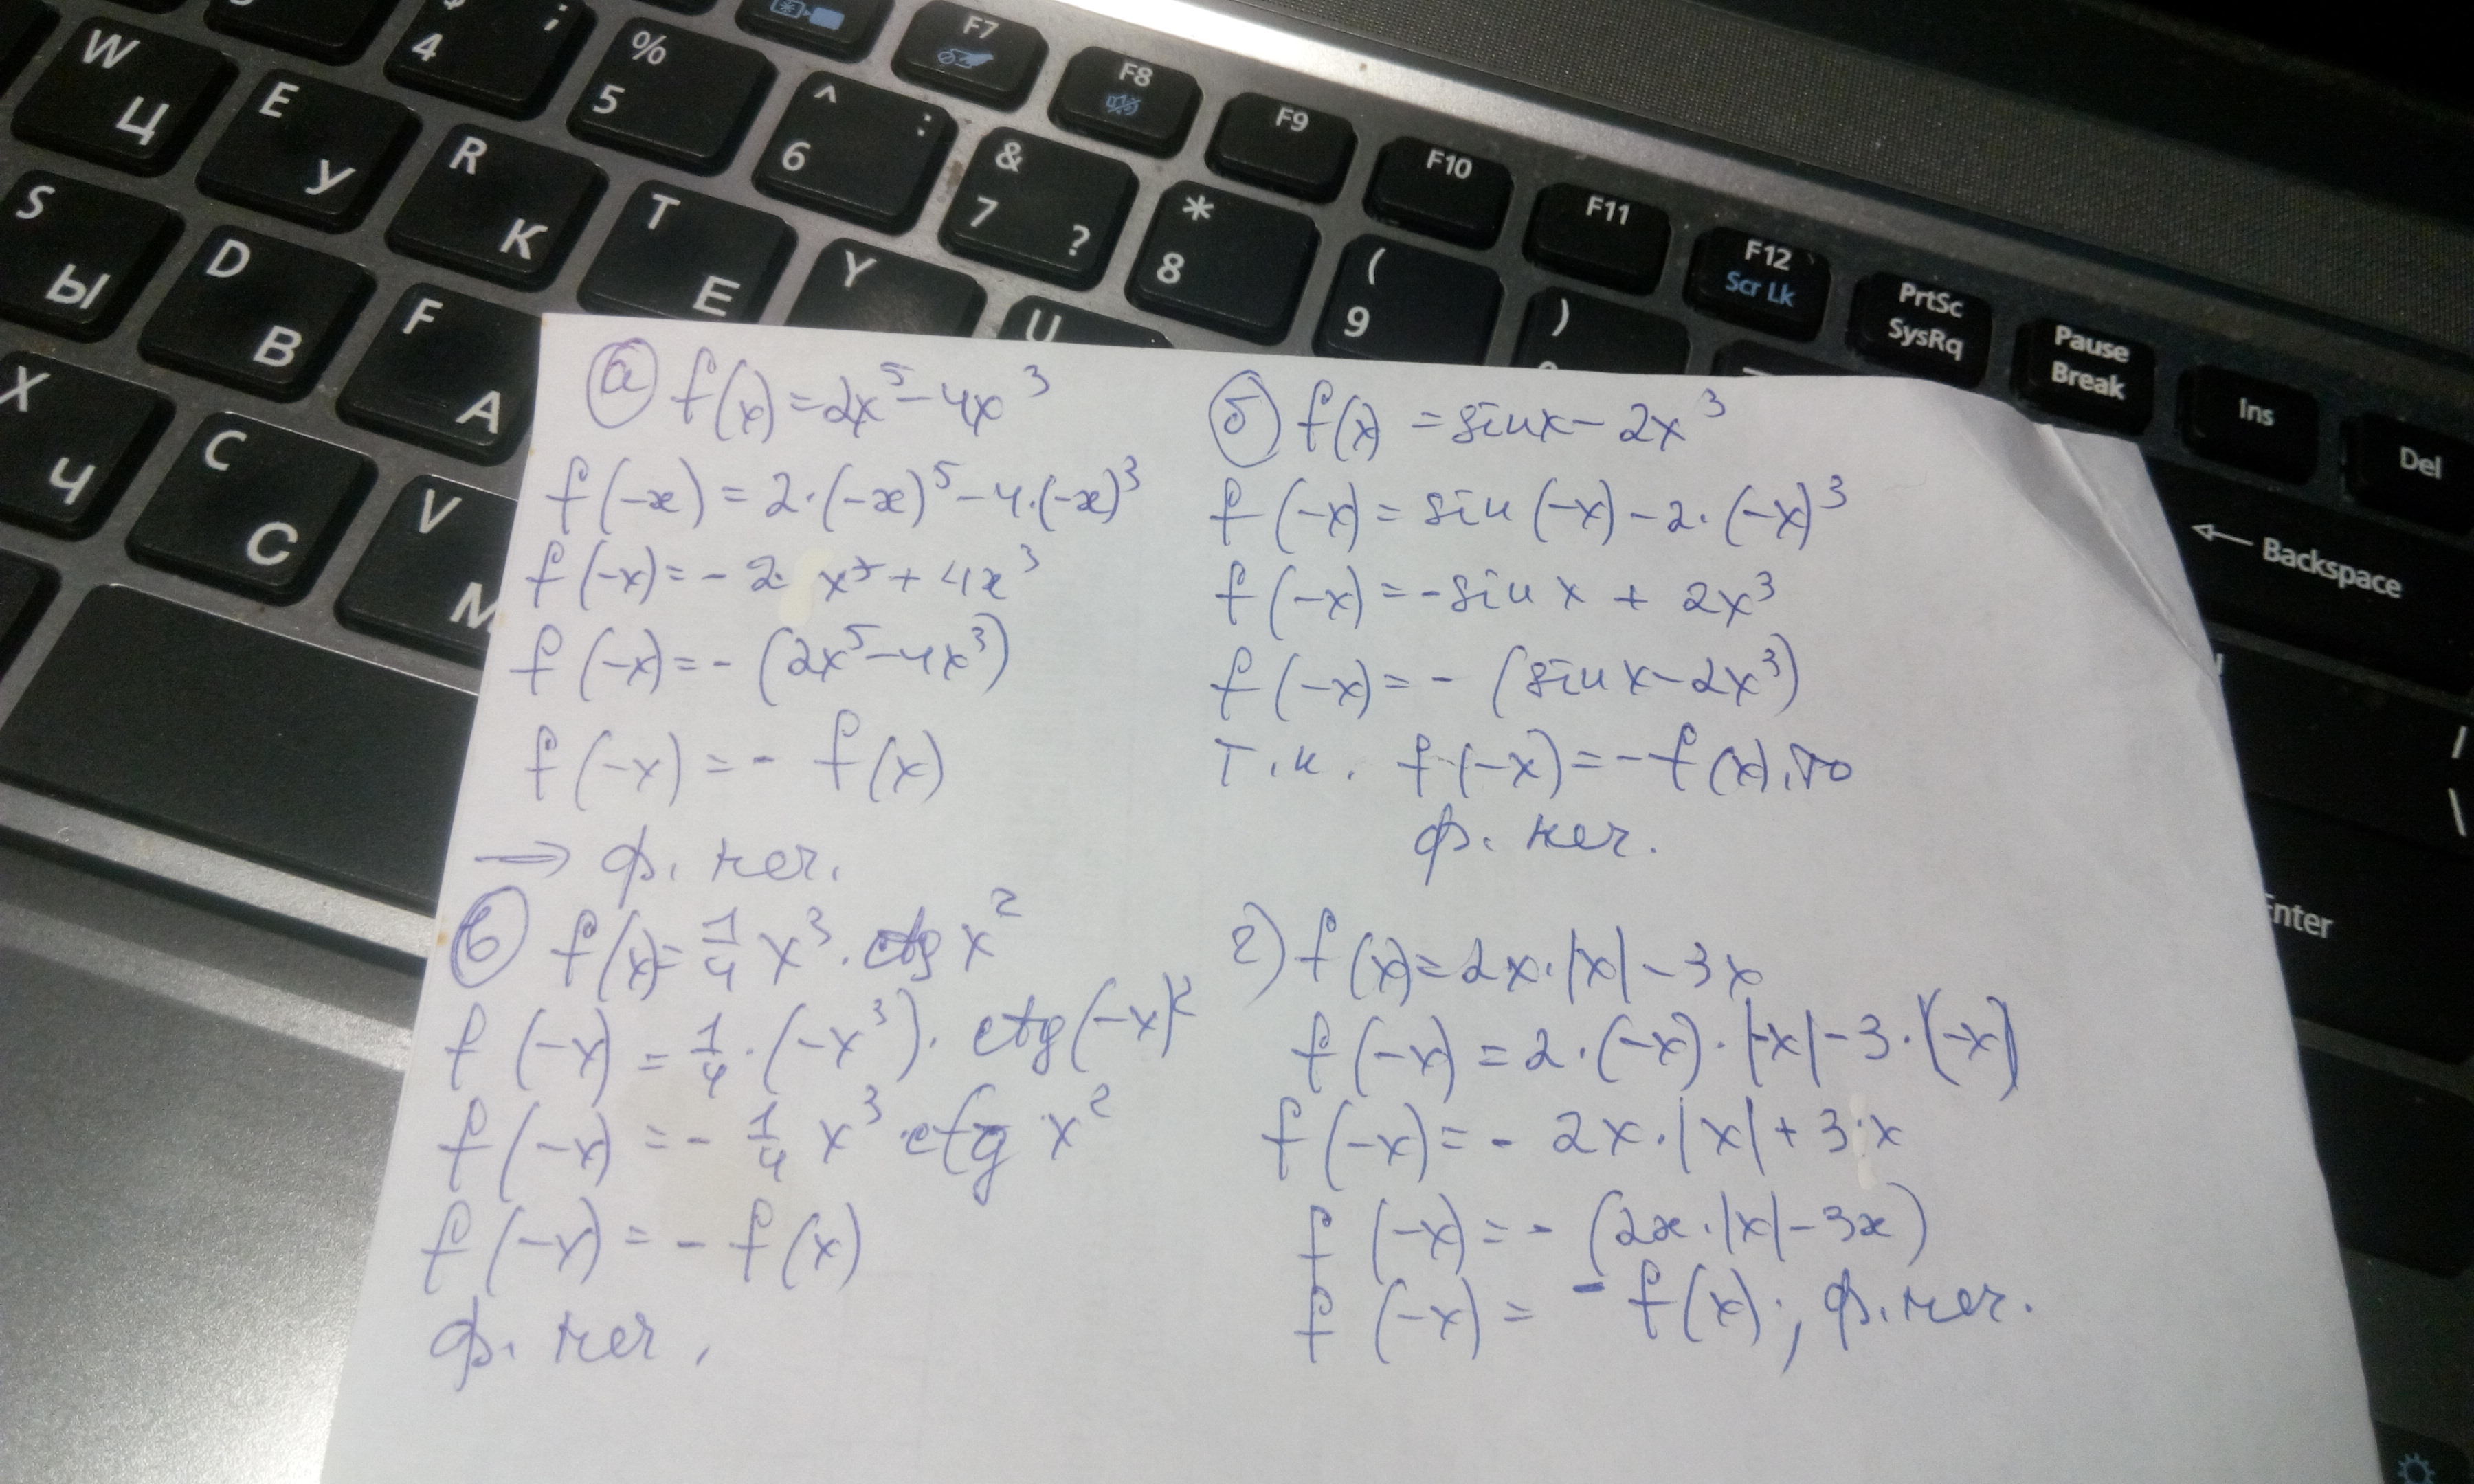 F7
F8
F9
F10
F11
F12
Scr Lk
PrtSc
SysRq
Pause
Break
Ins
Del
$ ;
4
%
5
^ :
6
&
7 ?
*
8
(
9
)
W Ц
E У
R К
T Е
Y
U
S Ы
D В
F А
X Ч
C С
V М
Backspace
Enter
/
\
а f(x) = 2x⁵ - 4x³
f(-x) = 2·(-x)⁵ - 4·(-x)³
f(-x) = - 2· x⁵ + 4x³
f(-x) = - (2x⁵ - 4x³)
f(-x) = - f(x)
→ ф. неч.
б f(x) = sinx - 2x³
f(-x) = sin(-x) - 2·(-x)³
f(-x) = - sin x + 2x³
f(-x) = - (sin x - 2x³)
т.к. f(-x) = - f(x), то
ф. неч.
в f(x) = 1/4 x³ · ctg x²
f(-x) = 1/4 · (-x³) · ctg(-x)²
f(-x) = - 1/4 x³ · ctg x²
f(-x) = - f(x)
ф. неч.
г) f(x) = 2x·|x| - 3x
f(-x) = 2·(-x)·|-x| - 3·(-x)
f(-x) = - 2x·|x| + 3·x
f(-x) = - (2x·|x| - 3x)
f(-x) = - f(x); ф. неч.